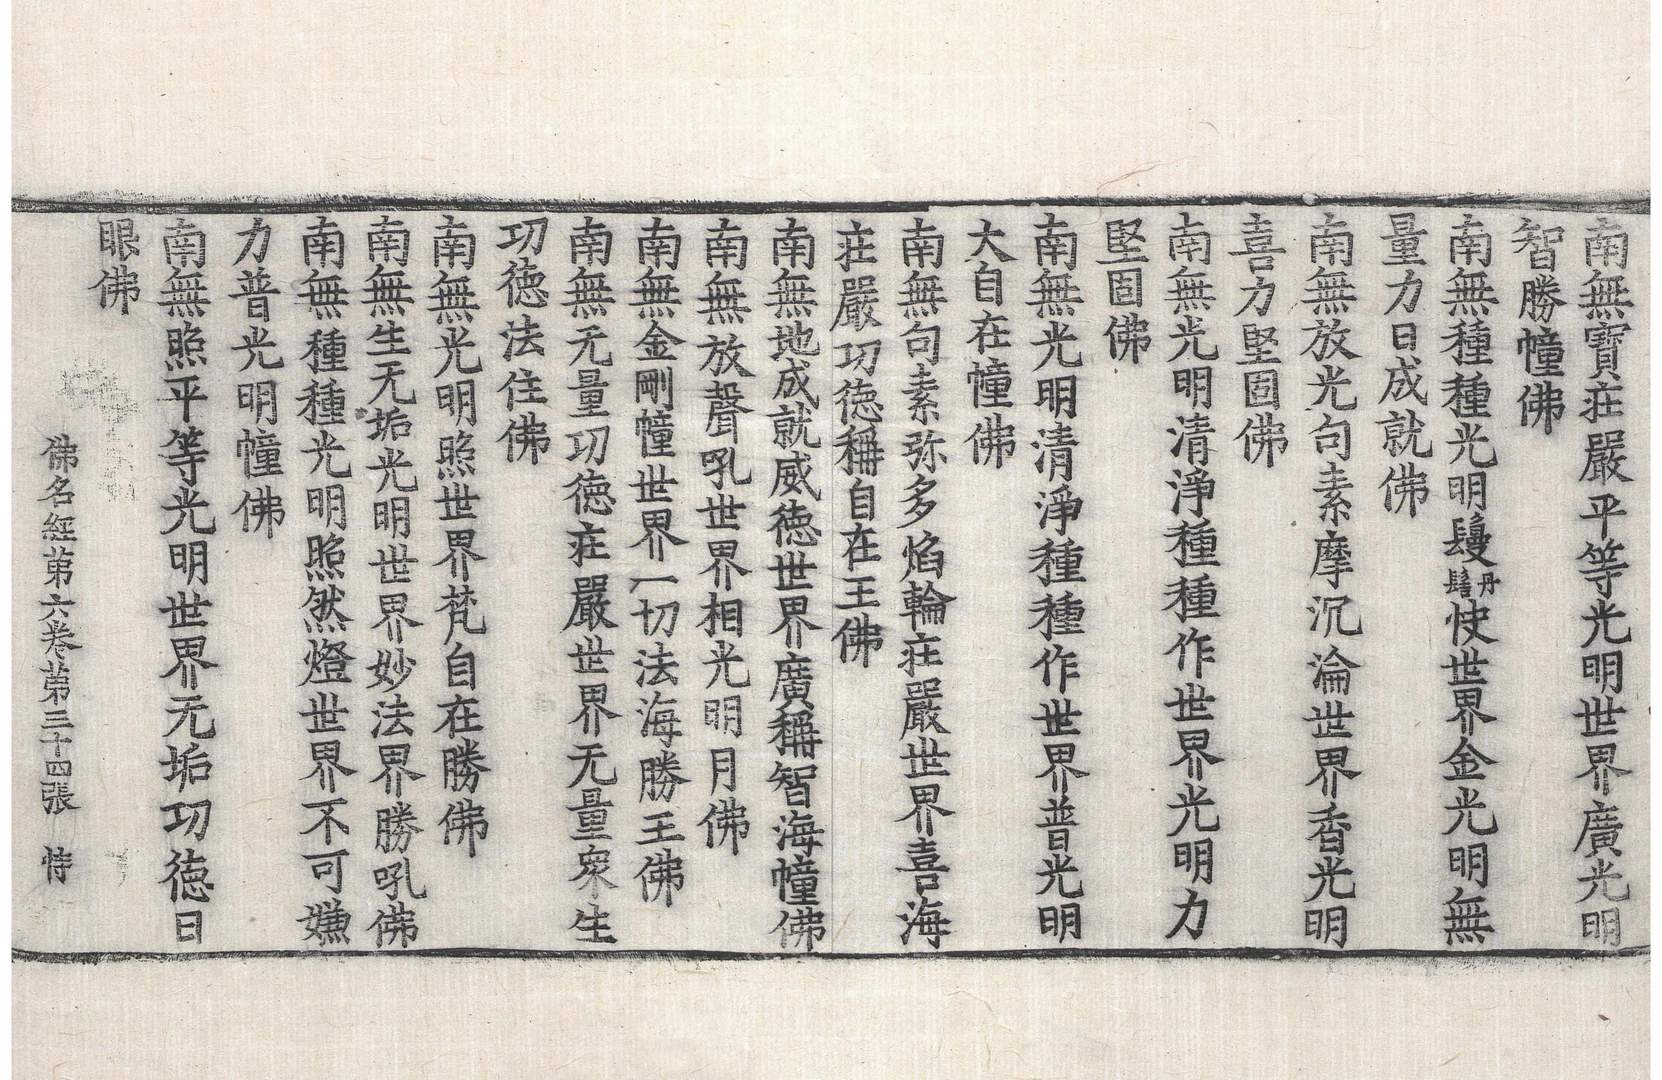 南無寶莊嚴平等光明世界廣光明
智勝幢佛
南無種種光明鬘丹鬚快世界金光明無
量力日成就佛
南無放光句素摩沉淪世界香光明
喜力堅固佛
南無光明清淨種種作世界光明力
堅固佛
南無光明清淨種種作世界普光明
大自在幢佛
南無句素弥多焰輪莊嚴世界喜海
莊嚴功德稱自在王佛
南無地成就威德世界廣稱智海幢佛
南無放聲吼世界相光明月佛
南無金剛幢世界一切法海勝王佛
南無无量功德莊嚴世界无量衆生
功德法住佛
南無光明照世界梵自在勝佛
南無生无垢光明世界妙法界勝吼佛
南無種種光明照然燈世界不可嫌
力普光明幢佛
南無照平等光明世界无垢功德日
眼佛
佛名經第六卷第三十四張 恃